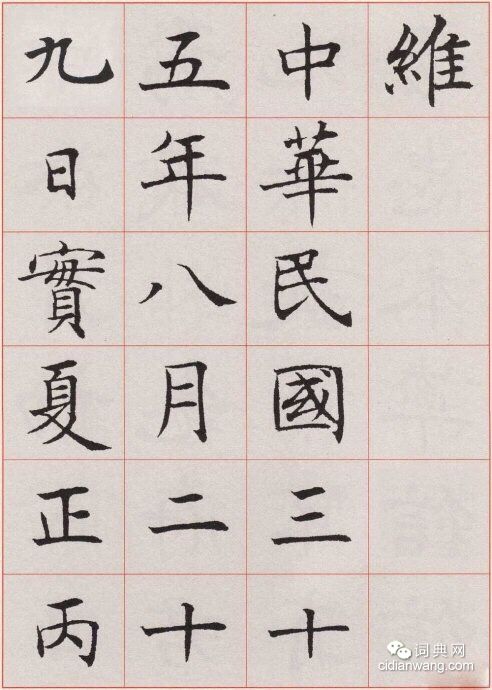 維
中華民國三十
五年八月二十
九日實夏正丙
词典网
cidianwang.com